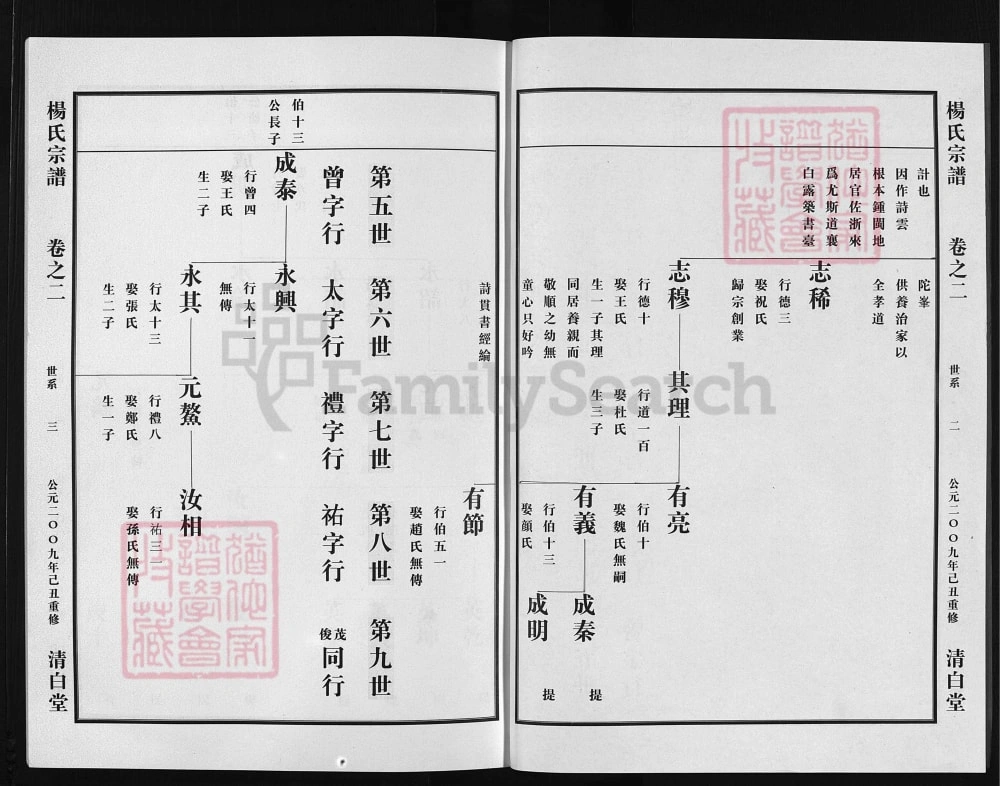 楊氏宗譜
卷之二
世系
二
公元二〇〇九年己丑重修
清白堂
計也
因作詩雲
根本鍾閩地
居官佐浙來
爲尤斯道襄
白露築書臺
陀峯
供養治家以
全孝道
志稀
行德三
娶祝氏
歸宗創業
志穆
行德十
娶王氏
生一子其理
同居養親而
敬順之幼無
童心只好吟
詩貫書經綸
其理
行道一百
娶杜氏
生三子
有亮
行伯十
娶魏氏無嗣
有義
行伯十三
娶顔氏
成秦
提
成明
提
有節
行伯五一
娶趙氏無傳
第五世
第六世
第七世
第八世
第九世
曾字行
太字行
禮字行
祐字行
茂俊同行
伯十三
公長子
成泰
行曾四
娶王氏
生二子
永興
行太十一
無傳
永其
行太十三
娶張氏
生二子
元鰲
行禮八
娶鄭氏
生一子
汝相
行祐三一
娶孫氏無傳
楊氏宗譜
卷之二
世系
三
公元二〇〇九年己丑重修
清白堂
FamilySearch